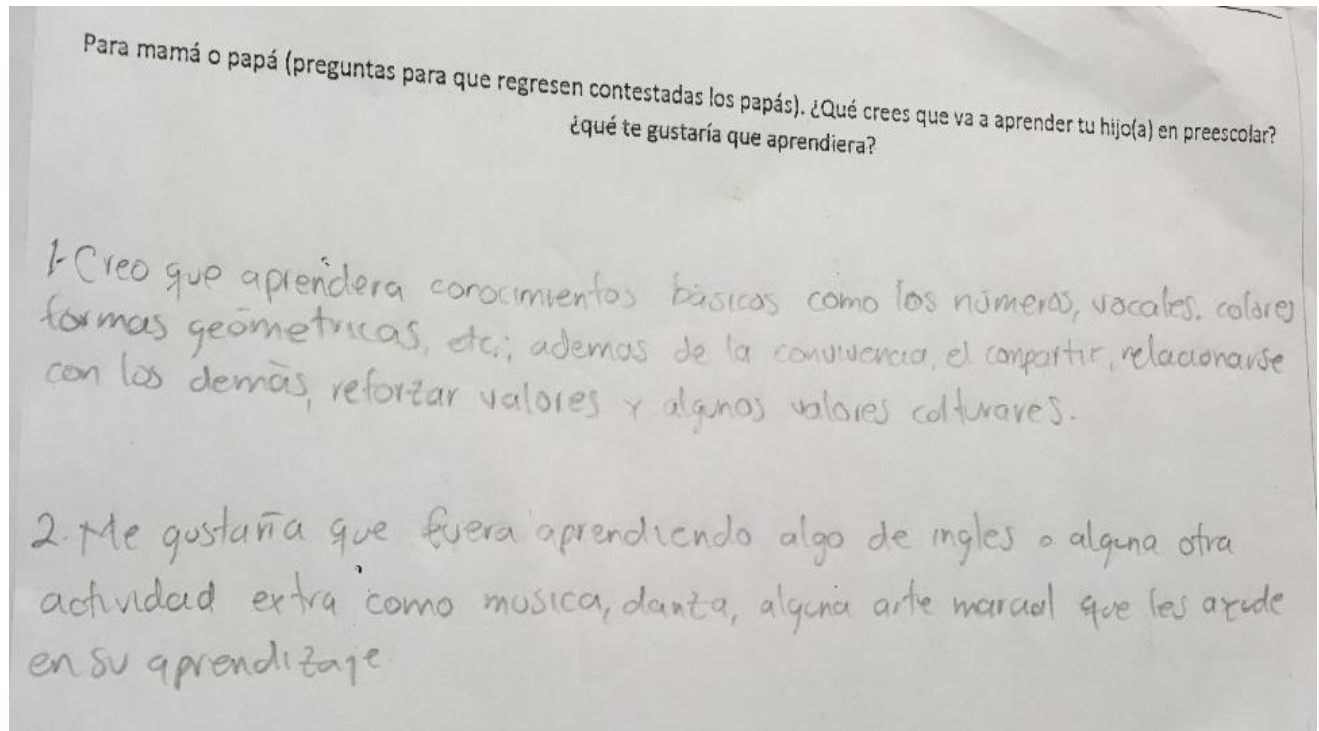 Para mamá o papá (preguntas para que regresen contestadas los papás). ¿Qué crees que va a aprender tu hijo(a) en preescolar?
¿qué te gustaría que aprendiera?
1-Creo que aprendera conocimientos básicos como los números, vocales, colores
formas geometricas, etc; ademas de la convivencia, el compartir, relacionarse
con los demás, reforzar valores y algunos valores colturaves.
2. Me gustaría que fuera aprendiendo algo de ingles o alguna otra
actividad extra como musica, danza, alguna arte marcial que les ayude
en su aprendizaje